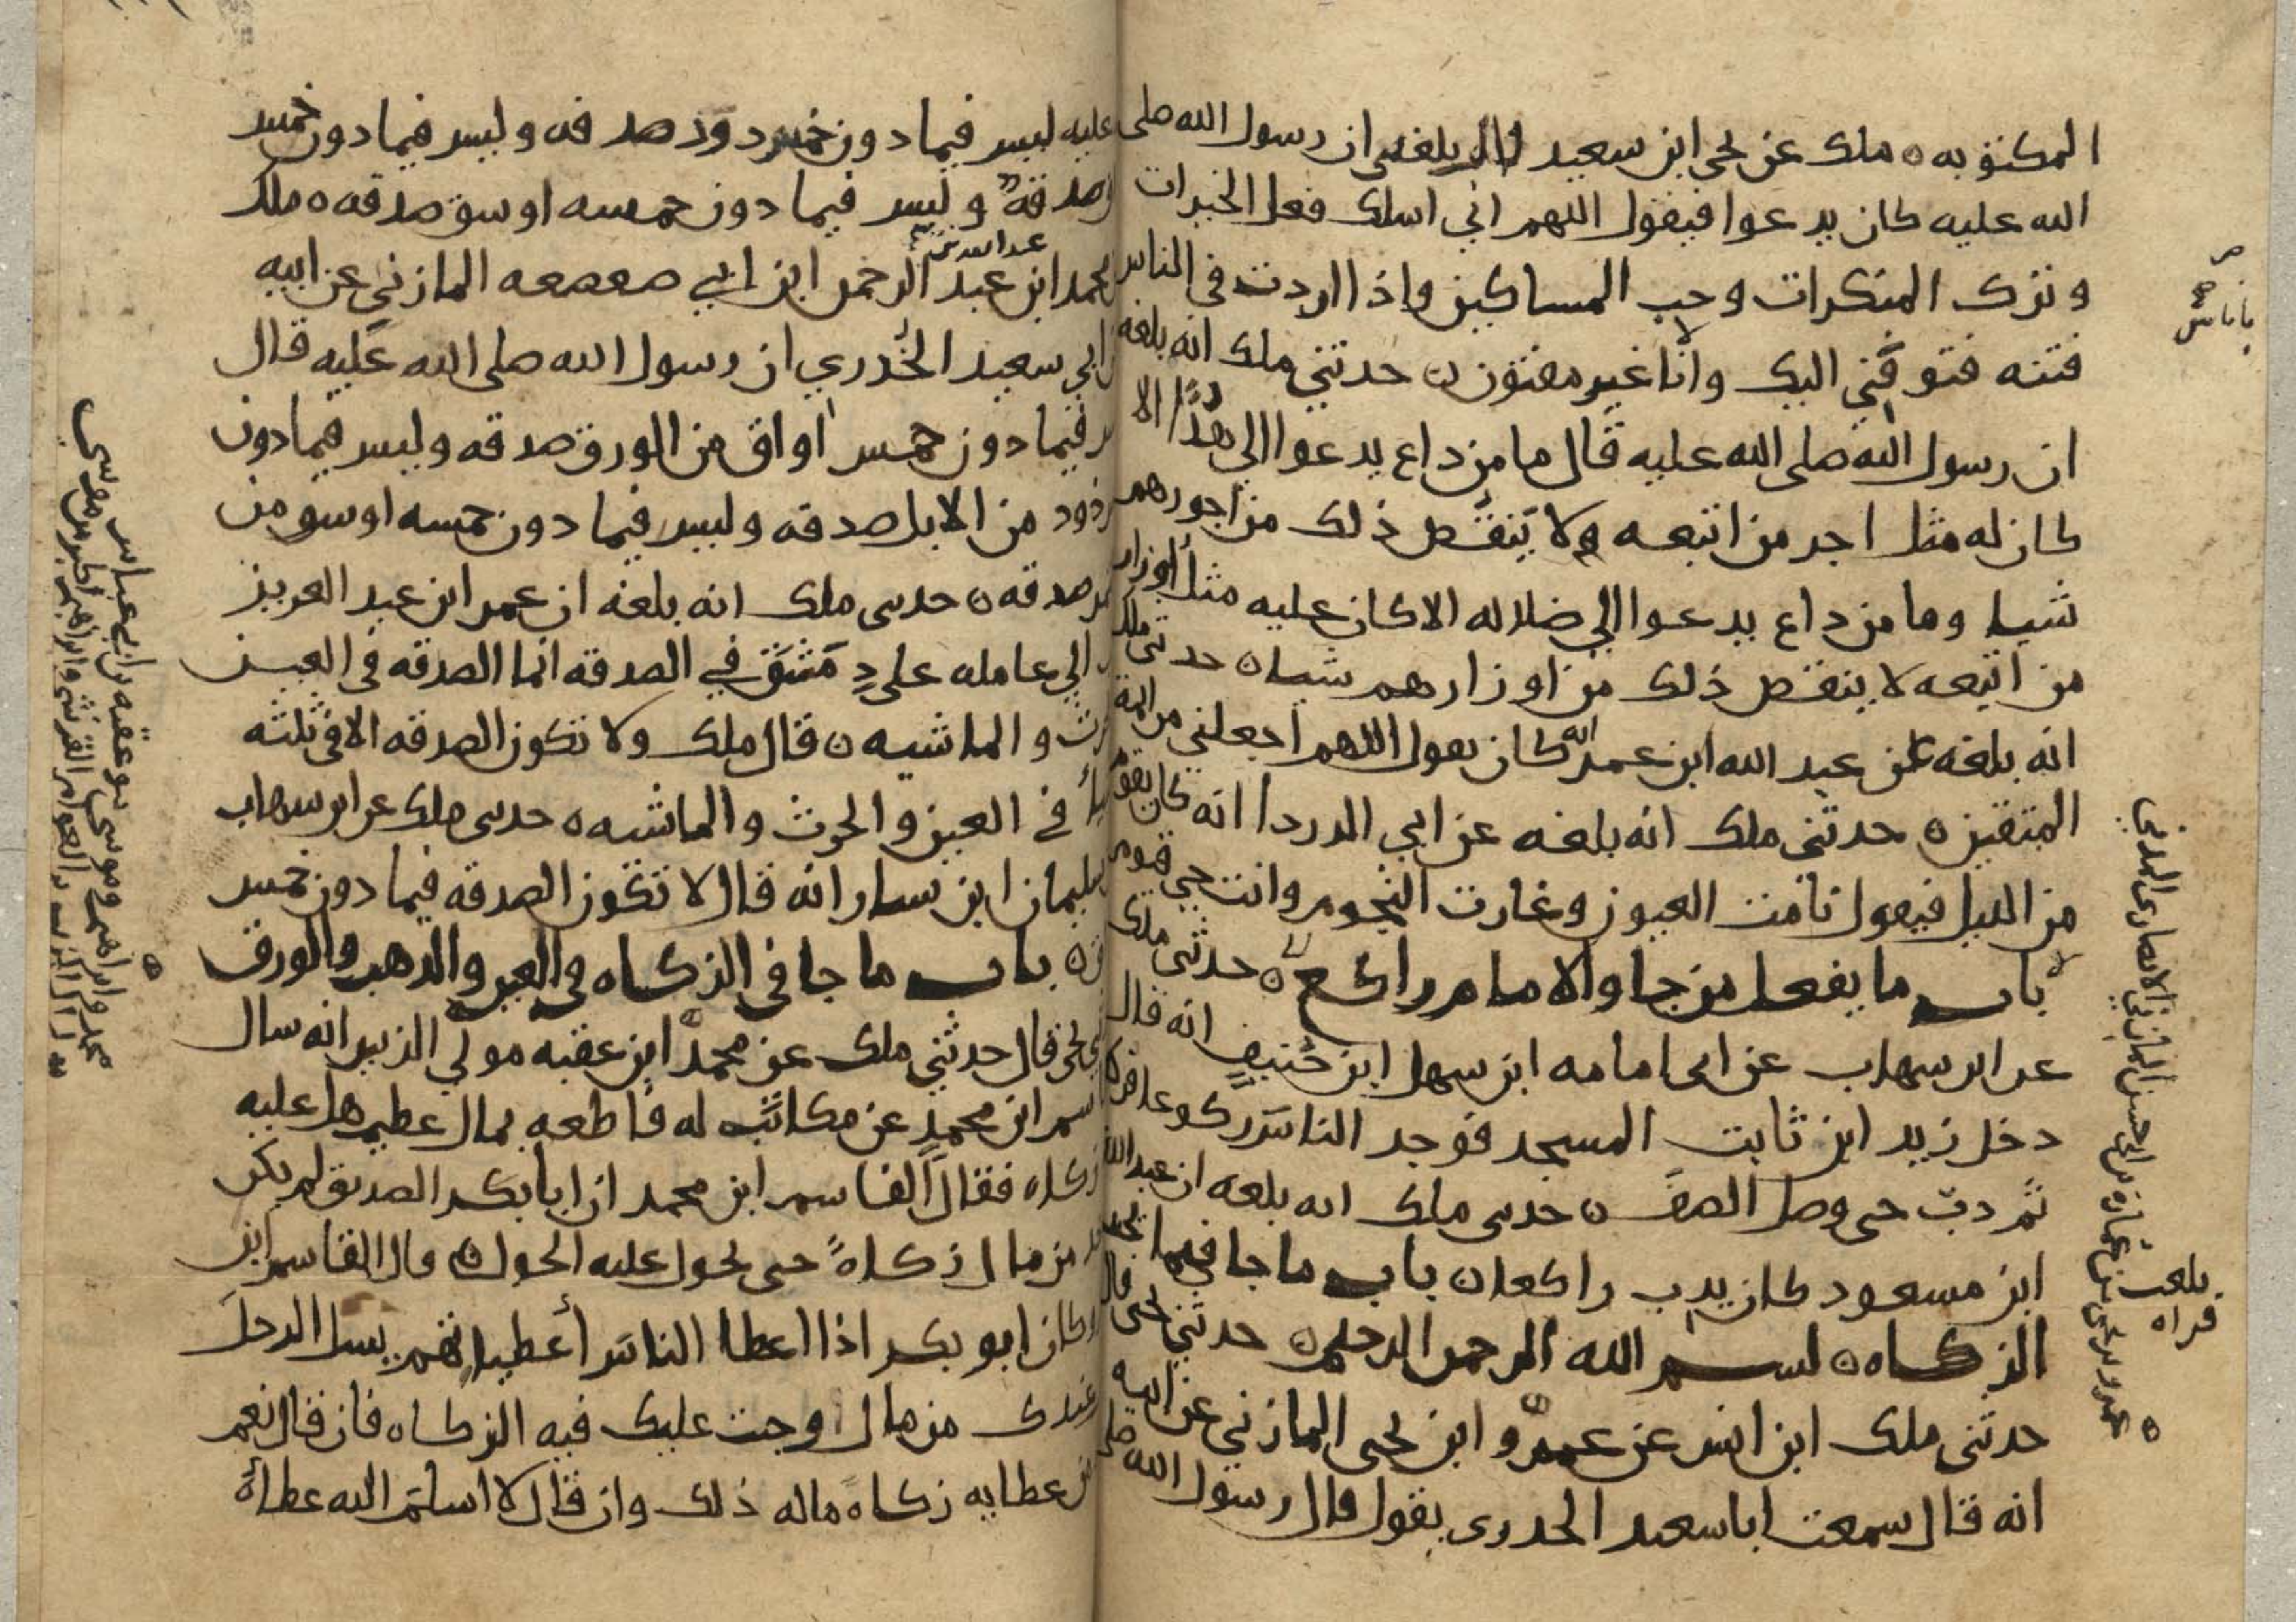 المكتوبه ه ملك عن يحي ابن سعيد قال بلغني ان رسول الله صلى
الله عليه كان يدعوا فيقول اللهم اني اسلك فعل الخيرات
وترك المنكرات وحب المساكين واذا اردت في الناس
فتنه فتوفني اليك وانا غير مفتون ه حدثني ملك انه بلغه
ان رسول الله صلى الله عليه قال ما من داع يدعوا الي هدًا الا
كان له مثل اجر من اتبعه ولا ينقص ذلك من اجورهم
شيا وما من داع يدعوا الي ضلاله الا كان عليه مثل أوزار
من اتبعه لا ينقص ذلك من اوزارهم شيا ه حدثني ملك
انه بلغه عن عبد الله ابن عمر انه كان يقول اللهم اجعلني من ايمة
المتقين ه حدثني ملك انه بلغه عن ابي الدردا انه كان يقوم
من الليل فيقول نامت العيون وغارت النجوم وانت حي قيوم
باب ما يفعل من جا والامام راكع ه حدثني ملك
عن ابن شهاب عن ابي امامه ابن سهل ابن حنيف انه قال
دخل زيد ابن ثابت المسجد فوجد الناس ركوعا فركع
ثم دب حتى وصل الصف ه حدثني ملك انه بلغه ان عبد الله
ابن مسعود كان يدب راكعا ه باب ما جا فيما تجب
الزكاه ه بسم الله الرحمن الرحيم ه حدثني يحيى قال
حدثني ملك ابن انس عن عمرو ابن يحيى المازني عن ابيه
انه قال سمعت ابا سعيد الخدري يقول قال رسول الله صلى
بلغت
قراه
عليه ليس فيما دون خمس ذود صدقه وليس فيما دون خمس
صدقة وليس فيما دون خمسه اوسق صدقه ه ملك
عبد الله بن
محمد ابن عبد الرحمن ابن ابي صعصعه المازني عن ابيه
ابي سعيد الخُدري ان رسول الله صلى الله عليه قال
فيما دون خمس اواق من الورق صدقه وليس فيما دون
ذود من الابل صدقه وليس فيما دون خمسه اوسق من
صدقه ه حدثني ملك انه بلغه ان عمر ابن عبد العزيز
الي عامله على دِمَشق في الصدقه انما الصدقه في العين
والماشيه ه قال ملك ولا تكون الصدقه الا في ثلثه
في العين والحرث والماشيه ه حدثني ملك عن ابن شهاب
سليمان ابن يسار انه قال لا تكون الصدقه فيما دون خمس
باب ما جا في الزكاه في العين والذهب والورق
يحي قال حدثني ملك عن محمد ابن عقبه مولي الزبير انه سال
ابن محمدٍ عن مكاتَب له قاطعه بمال عظيم هل عليه
زكاه فقال القاسم ابن محمد ان ابا بكر الصديق لم يكن
من مال زكاةً حتى يحول عليه الحول ه قال القاسم ابن
وكان ابو بكر اذا اعطا الناس أعطياتهم يسل الرجل
عندك من مال وجبت عليك فيه الزكاه فان قال نعم
من عطايه زكاه ماله ذلك وان قال لا اسلم اليه عطاه